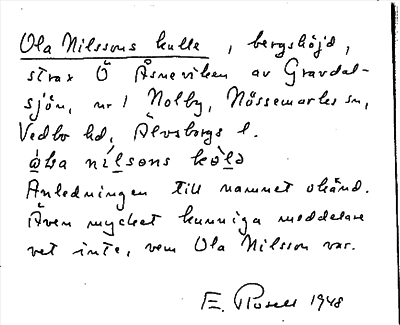 Ola Nilssons kulle, bergshöjd,
strax Ö Åsneviken av Gravdal-
sjön, nr 1 Nolby, Nössemarks sn,
Vedbo hd, Älvsborgs l.
nílsons
Anledningen till namnet okänd.
Även mycket kunniga meddelare
vet inte, vem Ola Nilsson var.
E. Rosell 1948